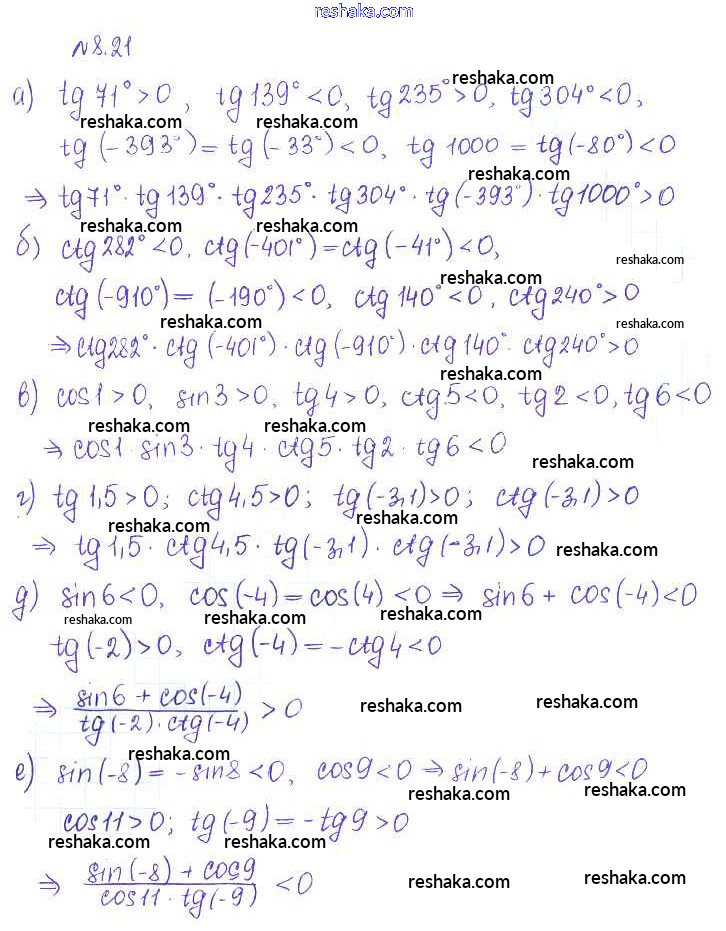 reshaka.com
№8.21
reshaka.com
а) tg 71° > 0, tg 139° < 0, tg 235° > 0, tg 304° < 0,
reshaka.com reshaka.com
tg (-393°) = tg (-33°) < 0, tg 1000 = tg (-80°) < 0
reshaka.com
⇒ tg 71° · tg 139° · tg 235° · tg 304° · tg (-393°) · tg 1000° > 0
reshaka.com reshaka.com
б) ctg 282° < 0, ctg (-401°) = ctg (-41°) < 0,
reshaka.com
reshaka.com
ctg (-910°) = (-190°) < 0, ctg 140° < 0, ctg 240° > 0
reshaka.com reshaka.com
⇒ ctg 282° · ctg (-401°) · ctg (-910°) · ctg 140° · ctg 240° > 0
reshaka.com
в) cos 1 > 0, sin 3 > 0, tg 4 > 0, ctg 5 < 0, tg 2 < 0, tg 6 < 0
reshaka.com reshaka.com
⇒ cos 1 · sin 3 · tg 4 · ctg 5 · tg 2 · tg 6 < 0
reshaka.com
г) tg 1,5 > 0; ctg 4,5 > 0; tg (-3,1) > 0; ctg (-3,1) > 0
reshaka.com reshaka.com
⇒ tg 1,5 · ctg 4,5 · tg (-3,1) · ctg (-3,1) > 0
reshaka.com
д) sin 6 < 0, cos (-4) = cos (4) < 0 ⇒ sin 6 + cos (-4) < 0
reshaka.com reshaka.com reshaka.com
tg (-2) > 0, ctg (-4) = -ctg 4 < 0
⇒ sin 6 + cos (-4) / tg (-2) · ctg (-4) > 0
reshaka.com reshaka.com
reshaka.com
е) sin (-8) = -sin 8 < 0, cos 9 < 0 ⇒ sin (-8) + cos 9 < 0
reshaka.com reshaka.com
cos 11 > 0; tg (-9) = -tg 9 > 0
reshaka.com reshaka.com
⇒ sin (-8) + cos 9 / cos 11 · tg (-9) < 0
reshaka.com reshaka.com